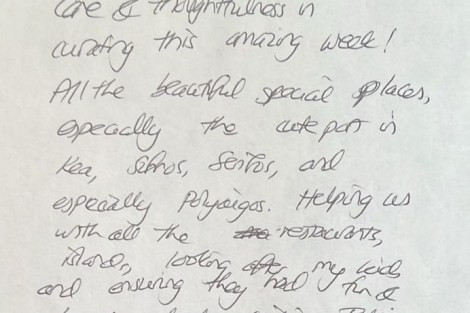 care & thoughtfulness in
curating this amazing week!
All the beautiful special places,
especially the cute port in
Kea, Sifnos, Serifos, and
especially Polyaigos. Helping us
with all the restaurants,
islands, looking after my kids
and ensuring they had fun &